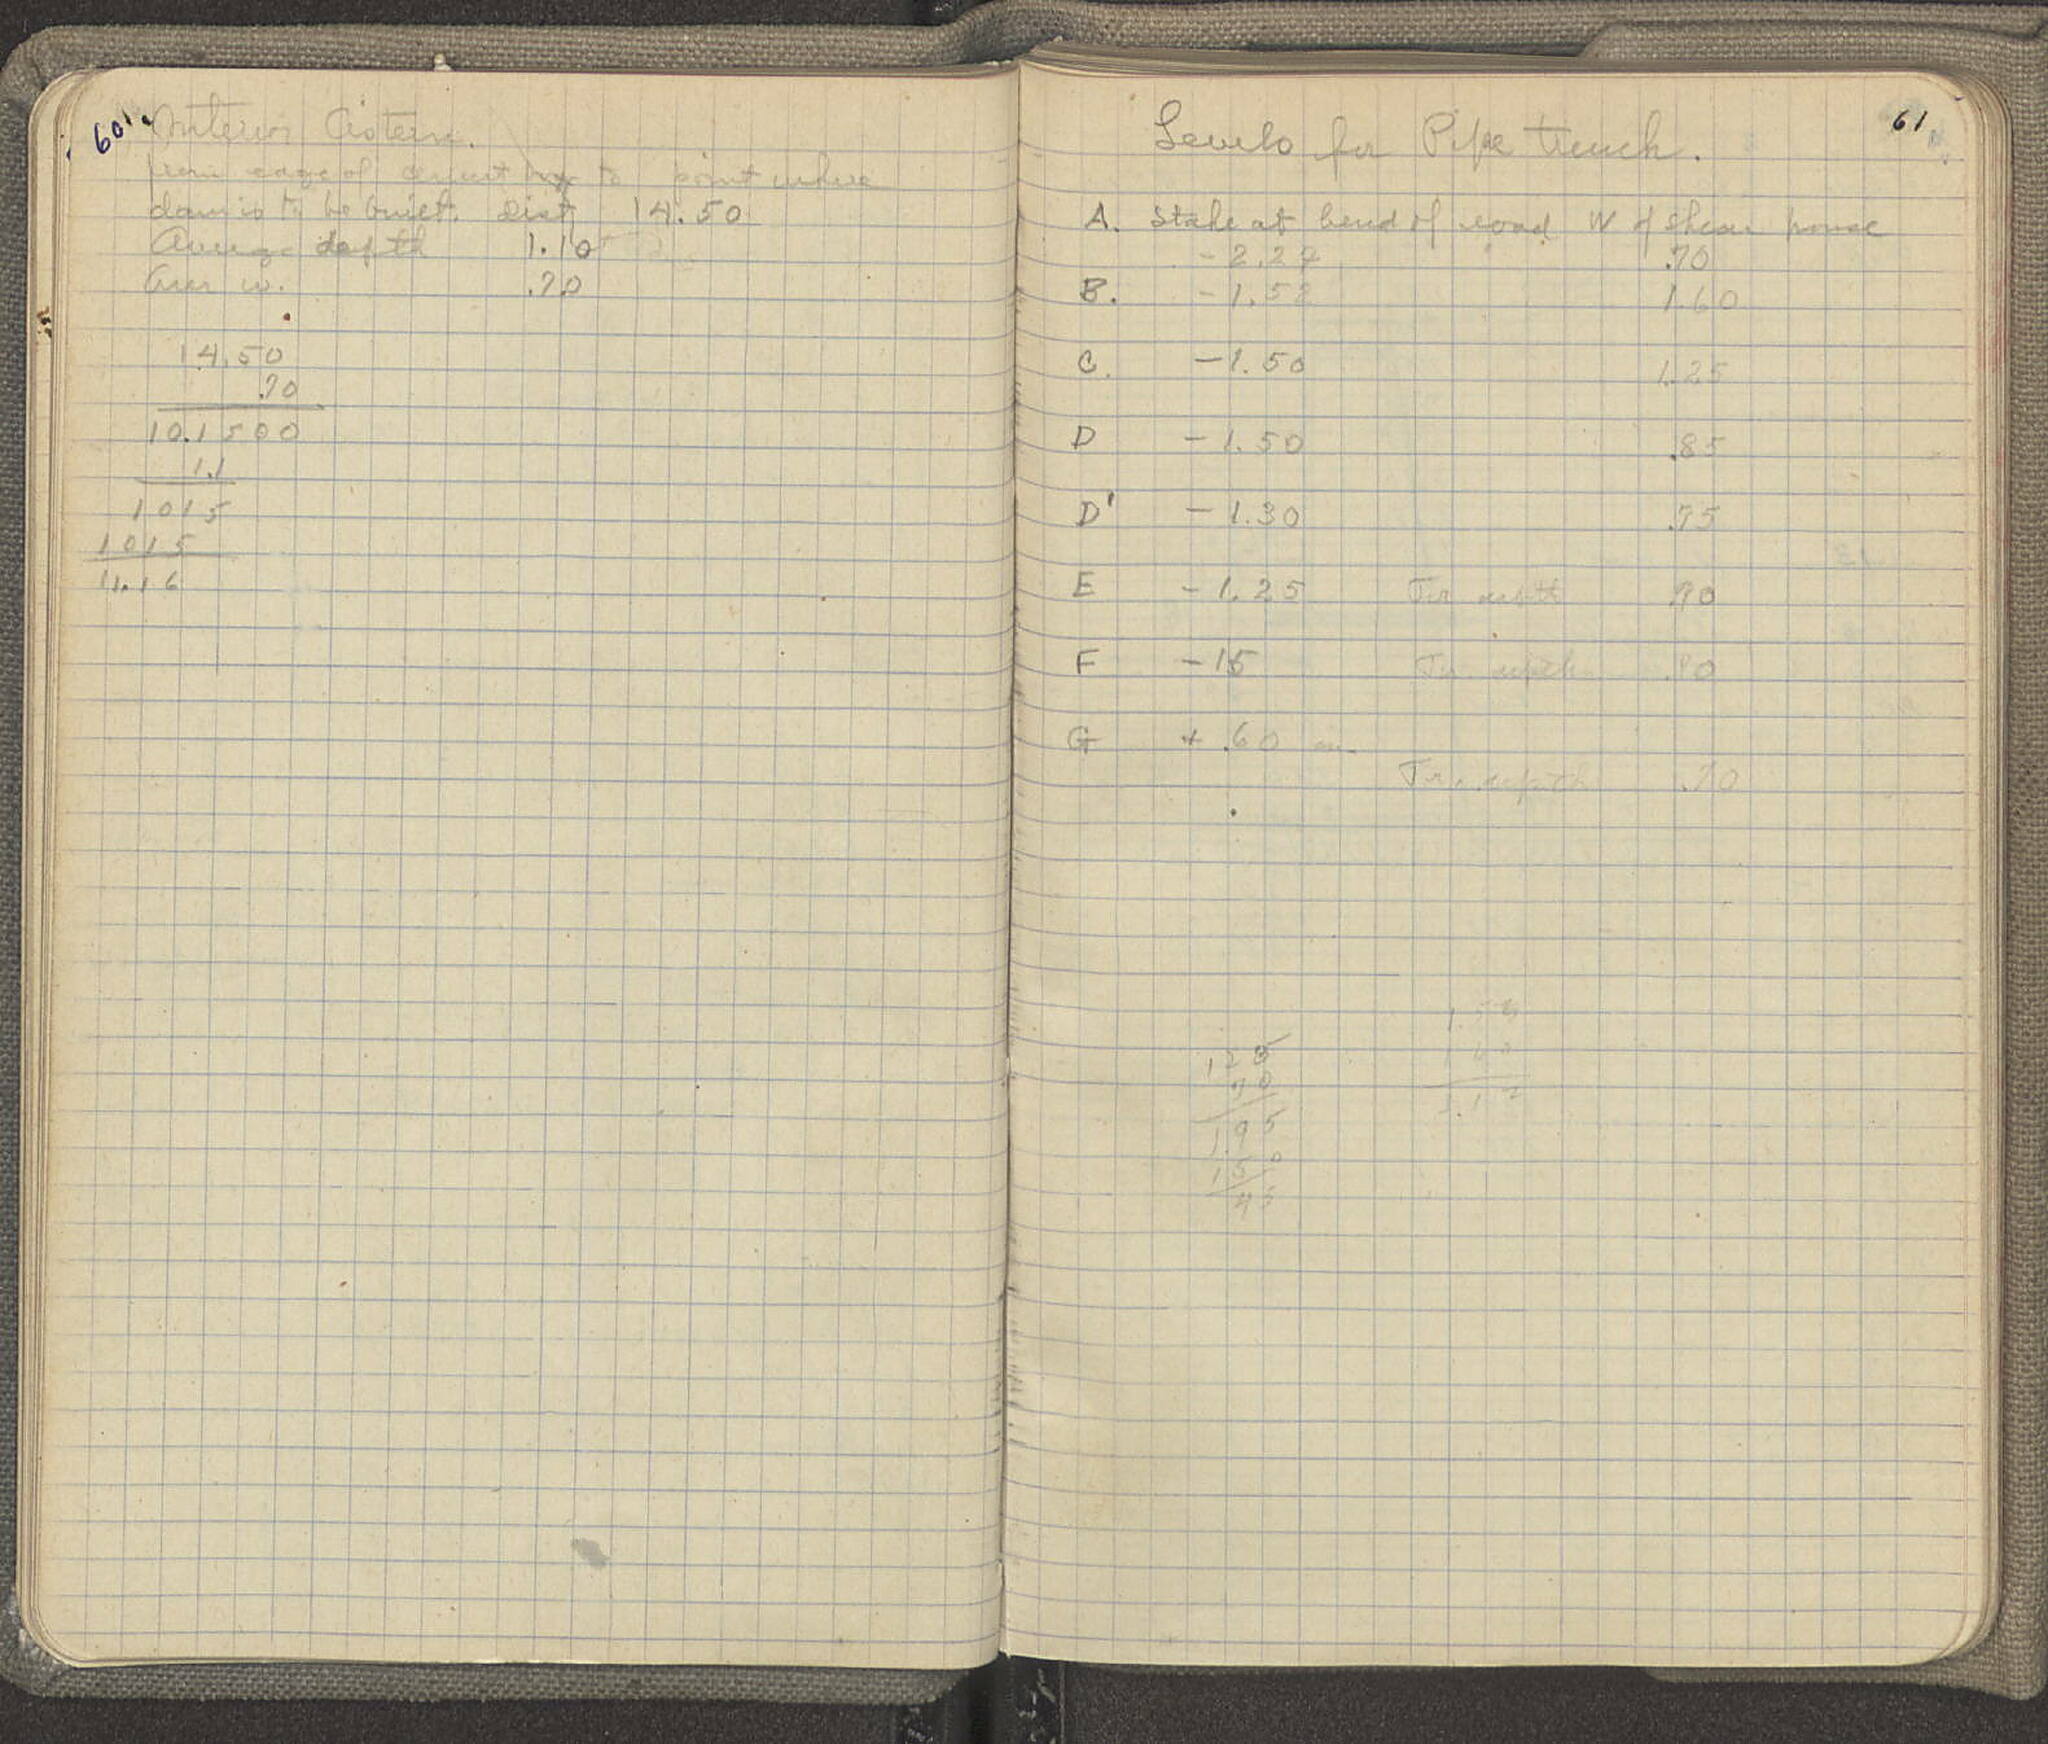 60
Interior Cistern.
From edge of cement to point where
dam is to be built. Dist 14.50
Average depth 1.10
Aver w. .70
14.50
.70
10.1500
1.1
1015
1015
11.16
61
Levels for Pipe trench.
A. Stake at bend of road W of shear house
-2.24 .70
B. -1.52 1.60
C. -1.50 1.25
D -1.50 .85
D' -1.30 .75
E -1.25 Tr. depth .70
F -15 Tr. depth .90
G + .60 m
Tr. depth .70
125
70
1.95
150
45